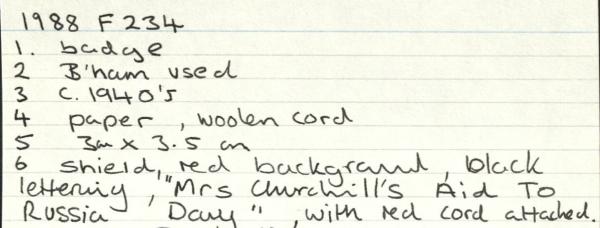 1988 F 234
1. badge
2 B'ham used
3 C. 1940's
4 paper , woolen cord
5 3cm x 3.5 cm
6 shield, red background, black
lettering, "Mrs Churchill's Aid To
Russia Day" , with red cord attached.